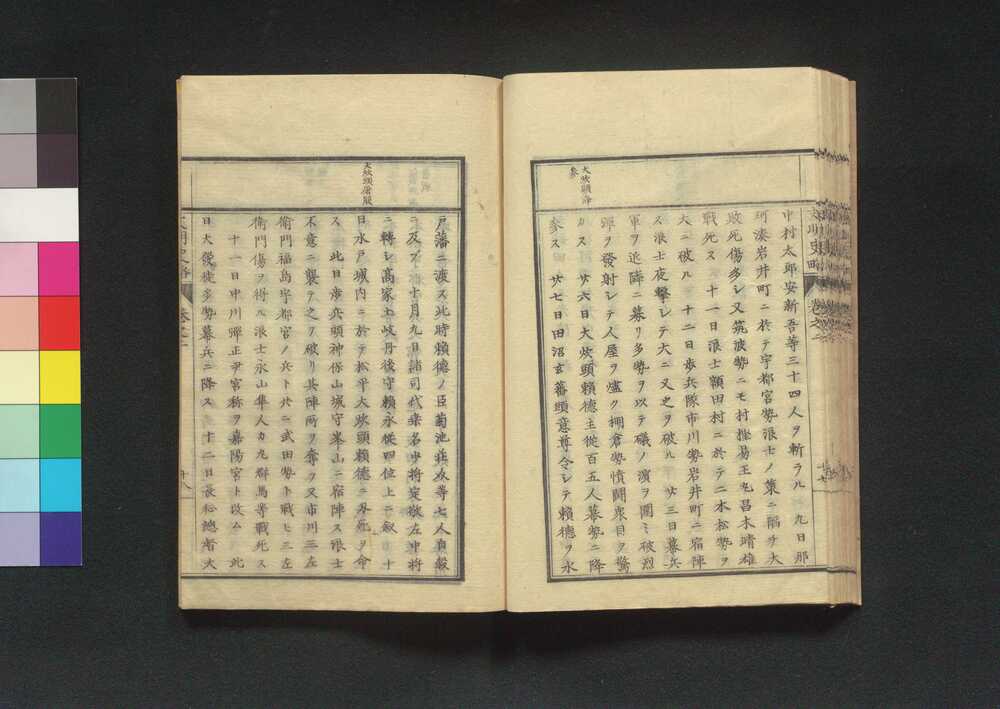 大炊頭降参
中村太郎安新吾等三十四人ヲ斬ラル 九日那
珂湊岩井町ニ於テ宇都宮勢浪士ノ策ニ陥チ大
敗死傷多シ又筑波勢ニモ村権易王丸昌木靖雄
戦死ス 十一日浪士額田村ニ於テ二本松勢ヲ
大ニ破ル 十二日歩兵隊市川勢岩井町ニ宿陣
ス浪士夜撃シテ大ニ又之ヲ破ル 廿三日幕兵
軍ヲ近隣ニ募リ多勢ヲ以テ礒ノ濱ヲ圍ミ破烈
弾ヲ發射シテ人屋ヲ爐ク棚倉勢憤闘衆目ヲ驚
カス 廿六日大炊頭賴德主從百五人幕勢ニ降
参ス 廿七日田沼玄蕃頭意尊令シテ賴德ヲ水
大炊頭屠腹
戸藩ニ渡ス此時賴德ノ臣菊池荘次等七人自殺
ニ及ブ 十月九日諸司代桑名少将定敬左中将
ニ轉シ高家土岐丹後守賴永從四位上ニ敘 十
日水戸城内ニ於テ松平大炊頭賴德ニ死ヲ命
ス 此日歩兵頭神保山城守峯山ニ宿陣ス浪士
不意ニ襲テ之ヲ破リ其陣所ヲ奪フ又市川三左
衛門福島宇都宮ノ兵ト共ニ武田勢ト戦ヒ三左
衛門傷ヲ得ル浪士永山隼人カ丸群馬等戦死ス
十一日中川彈正尹宮称ヲ嘉陽宮ト改ム 此
日大後徒多勢幕兵ニ降ス 十二日長松總督大
十八